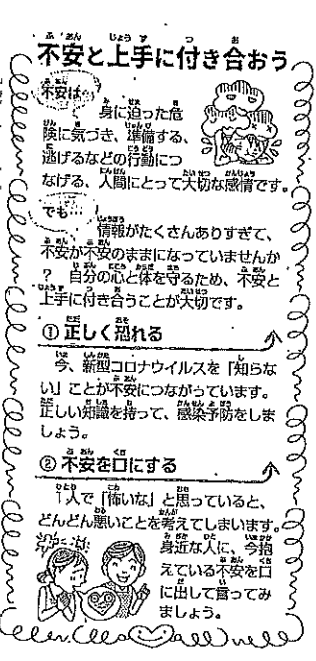 不安と上手に付き合おう
不安は…
身に迫った危
険に気づき、準備する、
逃げるなどの行動につ
なげる、人間にとって大切な感情です。
でも…
情報がたくさんありすぎて、
不安が不安のままになっていませんか
？　自分の心と体を守るため、不安と
上手に付き合うことが大切です。
① 正しく恐れる
今、新型コロナウイルスを「知らな
い」ことが不安につながっています。
正しい知識を持って、感染予防をしま
しょう。
② 不安を口にする
1人で「怖いな」と思っていると、
どんどん悪いことを考えてしまいます。
身近な人に、今抱
えている不安を口
に出して言ってみ
ましょう。